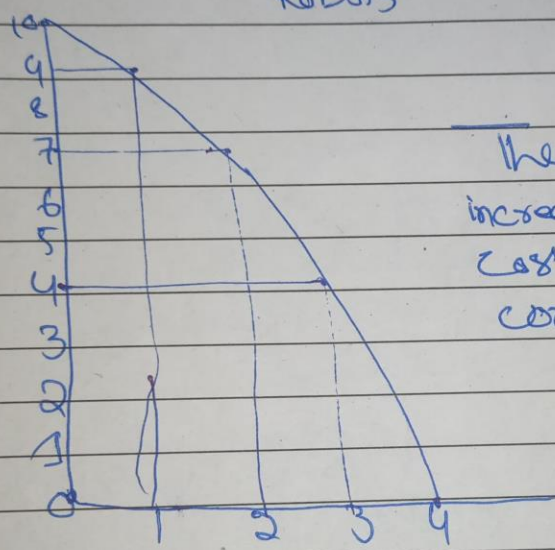 Robots
10
9
8
7
6
5
4
3
2
1
0
1 2 3 4
The
increa
Cos
Co